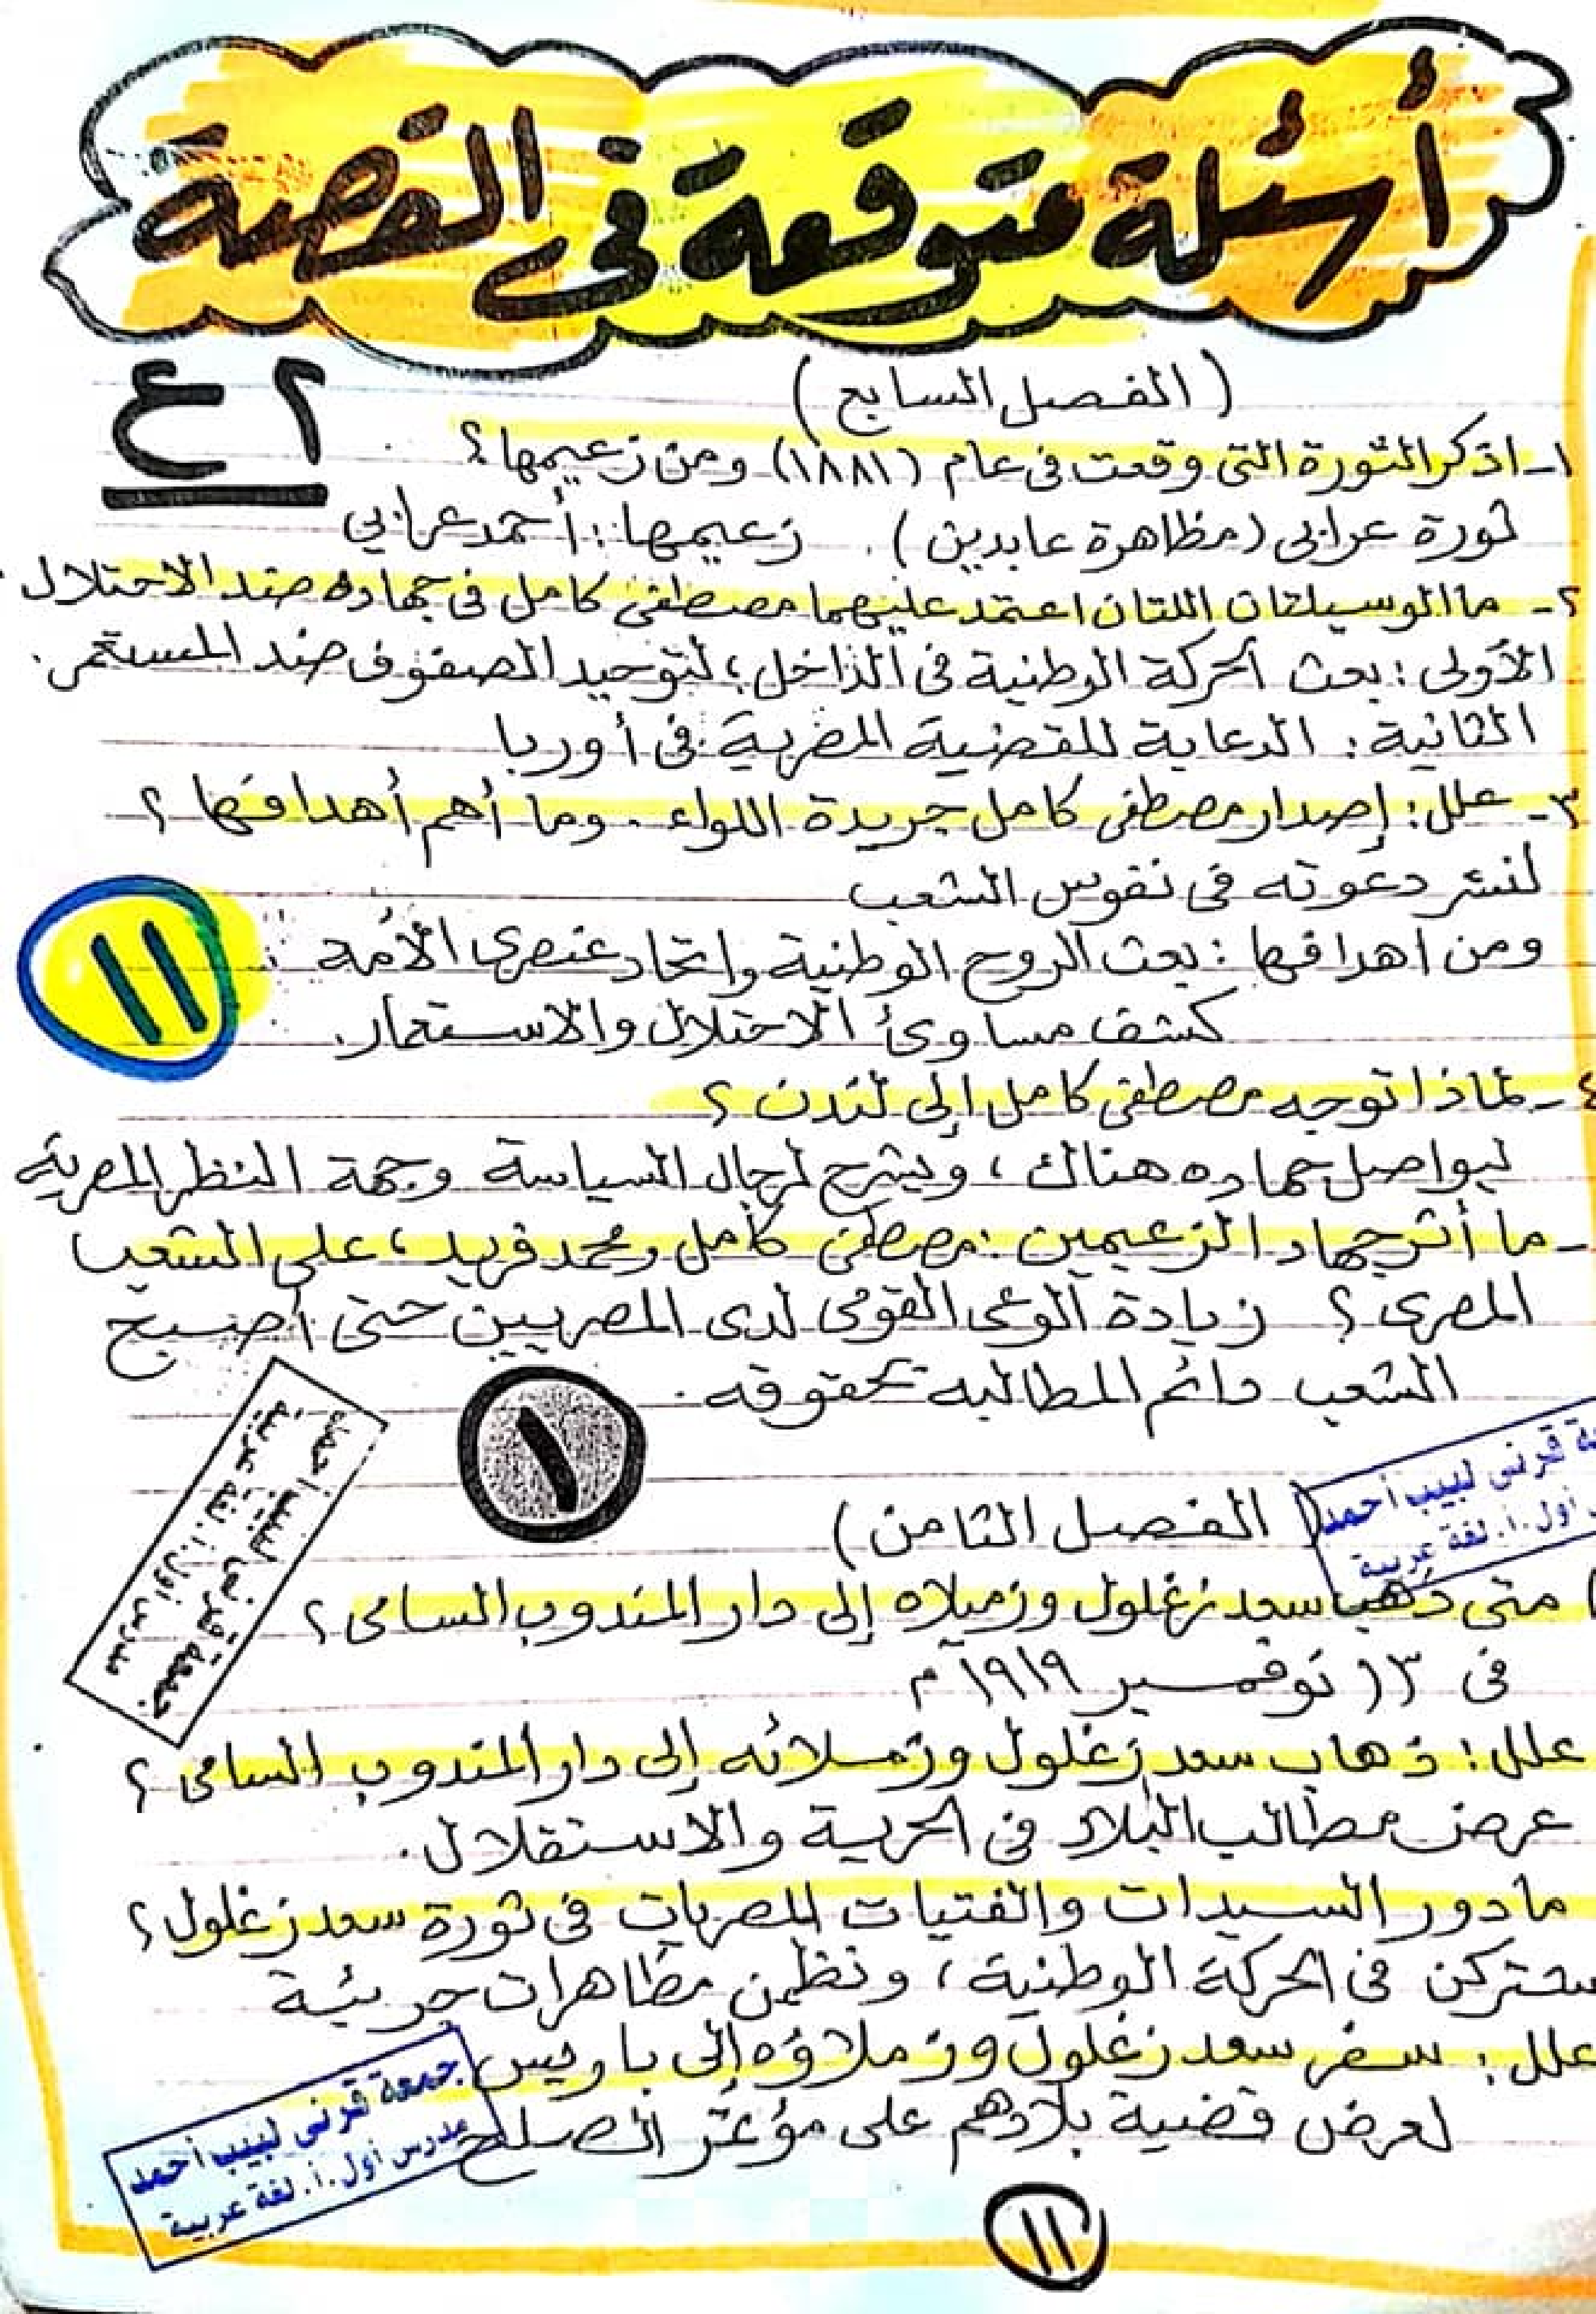 أسئلة متوقعة فى القصة
٢ ع
( الفصل السابع )
١- اذكر الثورة التى وقعت فى عام (١٨٨١) ومن زعيمها؟
ثورة عرابى (مظاهرة عابدين) . زعيمها : أحمد عرابي
٢- ما الوسيلتان اللتان اعتمد عليهما مصطفى كامل فى جهاده ضد الاحتلال .
الأولى : بعث الحركة الوطنية فى الداخل ؛ لتوحيد الصفوف ضد المستعمر .
الثانية : الدعاية للقضية المصرية فى أوربا
٣- علل : إصدار مصطفى كامل جريدة اللواء . وما أهم أهدافها ؟
لنشر دعوته فى نفوس الشعب
ومن اهدافها : بعث الروح الوطنية واتحاد عنصرى الأمه
كشف مساوئ الاحتلال والاستعمار .
١١
٤- لماذا توجه مصطفى كامل إلى لندن ؟
ليواصل جهاده هناك ، ويشرح لرجال السياسة وجهة النظر المصرية
- ما أثر جهاد الزعيمين : مصطفى كامل ومحمد فريد ، على الشعب
المصرى ؟ زيادة الوعى القومى لدى المصريين حتى أصبح
الشعب دائم المطالبه بحقوقه .
١
جمعة قرنى لبيب أحمد
مدرس أول .أ. لغة عربية
قرنى لبيب أحمد
أول .أ. لغة عربية
( الفصل الثامن )
) متى ذهب سعد زغلول وزميلاه إلى دار المندوب السامى ؟
فى ١٣ نوفمبر ١٩١٩ م
علل : ذهاب سعد زغلول وزملائه إلى دار المندوب السامى ؟
عرض مطالب البلاد فى الحرية والاستقلال .
ما دور السيدات والفتيات المصريات فى ثورة سعد زغلول ؟
شتركن فى الحركة الوطنية ، ونظمن مظاهرات جريئة
علل : سفر سعد زغلول وزملاؤه إلى باريس
لعرض قضية بلادهم على مؤتمر الصلح
جمعة قرنى لبيب أحمد
مدرس أول .أ. لغة عربية
١١